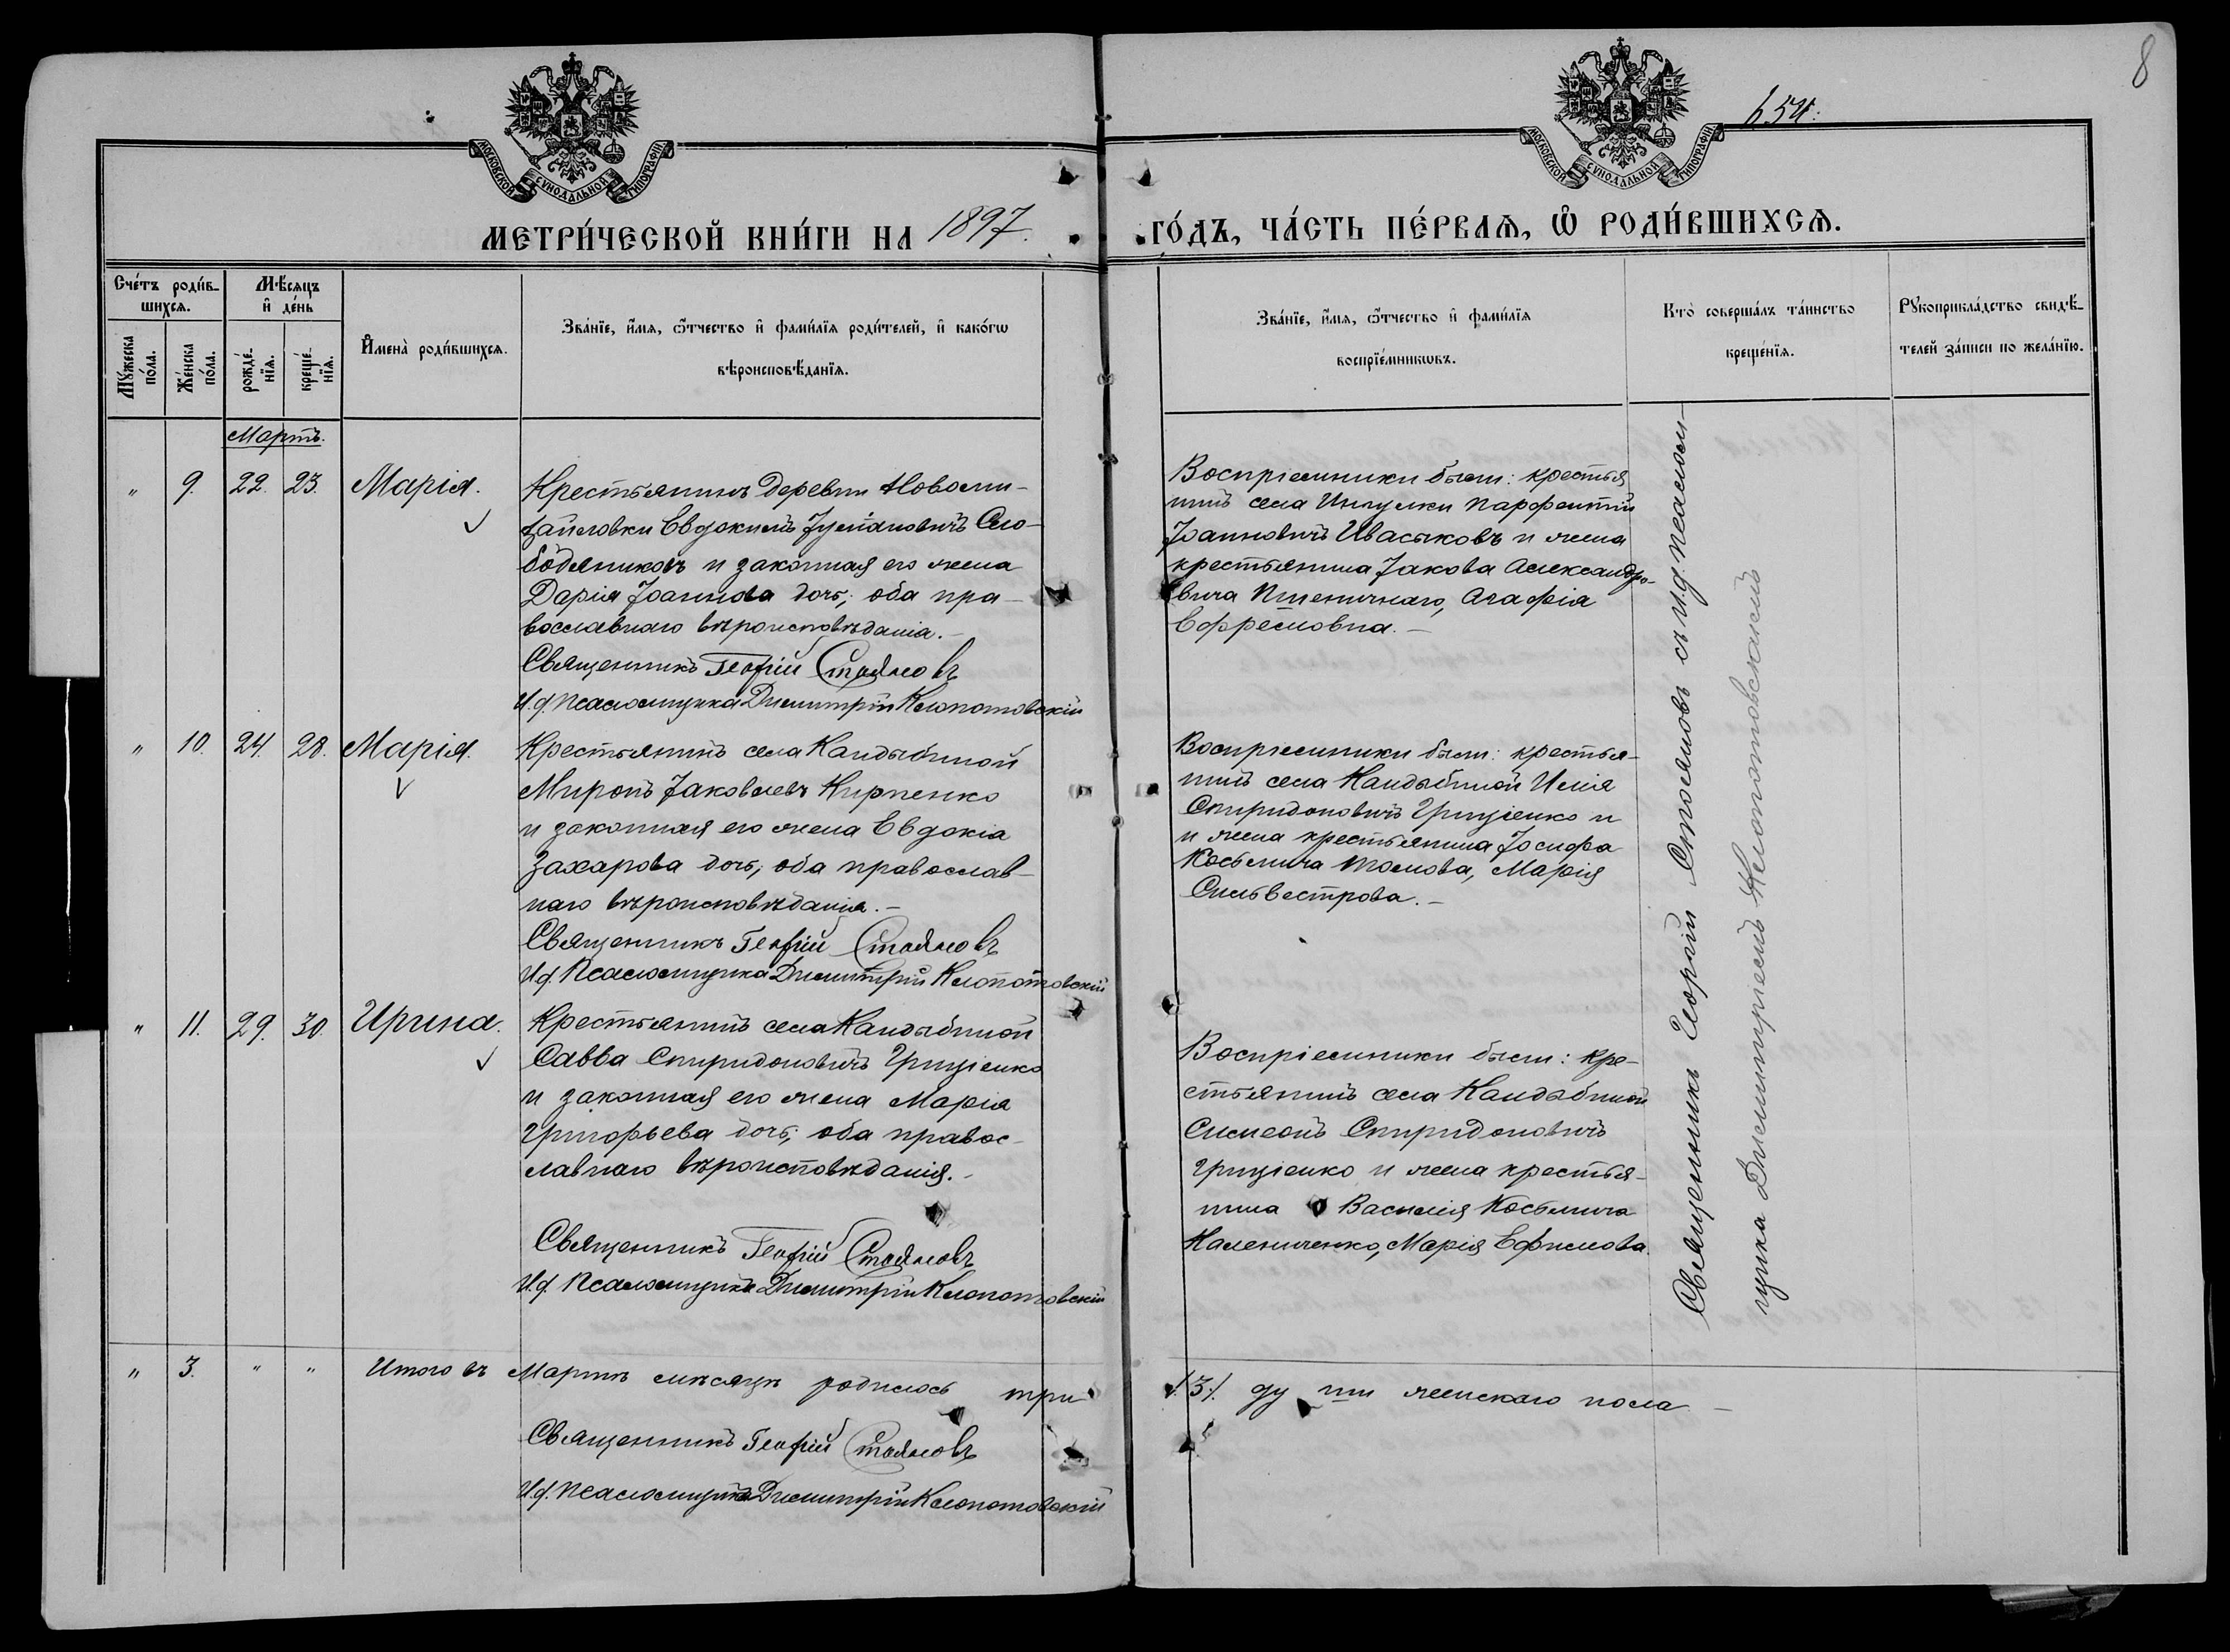 8
654.
МОСКОВСКОЙ СѴНОДАЛЬНОЙ ТИПОГРАФІИ
МОСКОВСКОЙ СѴНОДАЛЬНОЙ ТИПОГРАФІИ
МЕТРИ́ЧЕСКОЙ КНИ́ГИ НА 1897.
ГО́ДЪ, ЧА́СТЬ ПЕ́РВАѦ, Ѡ҆ РОДИ́ВШИХСѦ.
Сче́тъ роди́в-
шихсѧ.
Мꙋ́жеска по́ла.
Же́нска по́ла.
Мѣ́сѧцъ
и҆ де́нь
рожде́-
нїѧ.
креще́-
нїѧ.
И҆мена̀ роди́вшихсѧ.
Зва́нїе, и҆́мѧ, ѻ҆́тчество и҆ фами́лїѧ роди́телей, и҆ како́гѡ
вѣроисповѣ́данїѧ.
Зва́нїе, и҆́мѧ, ѻ҆́тчество и҆ фами́лїѧ
воспрїе́мникѡвъ.
Кто̀ соверша́лъ та́инство
креще́нїѧ.
Рꙋкоприкла́дство свидѣ́-
телей за́писи по жела́нїю.
Мартъ.
" 9. 22. 23. Марія.
Крестьянинъ деревни Новоми-
хайловки Евдокимъ Іуліановичъ Сло-
бодяниковъ и законная его жена
Дарія Іоаннова дочь; оба пра-
вославнаго вѣроисповѣданія.-
Священникъ Георгій Стояновъ
И.д. псаломщика Димитрій Клопотовскій
Воспріемники были: крестья
нинъ села Ингулки Парфентій
Іоанновичъ Ивасыковъ и жена
крестьянина Іакова Александро-
вича Пшеничнаго, Агафія
Ефремовна.-
" 10. 24. 28. Марія.
Крестьянинъ села Кандыбиной
Миронъ Іаковлевъ Кирпенко
и законная его жена Евдокіа
Захарова дочь; оба православ-
наго вѣроисповѣданія.-
Священникъ Георгій Стояновъ
И.д. Псаломщика Димитрій Клопотовскій
Воспріемники были: крестья-
нинъ села Кандыбиной Илія
Спиридоновичъ Гриціенко и
и жена крестьянина Іосифа
Косьмича Томова, Марія
Сильвестрова.-
" 11. 29. 30. Ирина.
Крестьянинъ села Кандыбиной
Савва Спиридоновичъ Гриціенко
и законная его жена Марія
Григорьева дочь; оба правос-
лавнаго вѣроисповѣданія.-
Священникъ Георгій Стояновъ
И.д. Псаломщика Димитрій Клопотовскій
Воспріемники были: кре-
стьянинъ села Кандыбиной
Симеонъ Спиридоновичъ
Гриціенко и жена крестья-
нина Василія Косьмича
Калениченко, Марія Ефимова.
Священникъ Георгій Стояновъ съ и.д. псалом-
щика Димитріемъ Клопотовскимъ
" 3. " " Итого въ Мартѣ мѣсяцѣ родилось три
/3/. ду ши женскаго пола -
Священникъ Георгій Стояновъ
И.д. Псаломщика Димитрій Клопотовскій